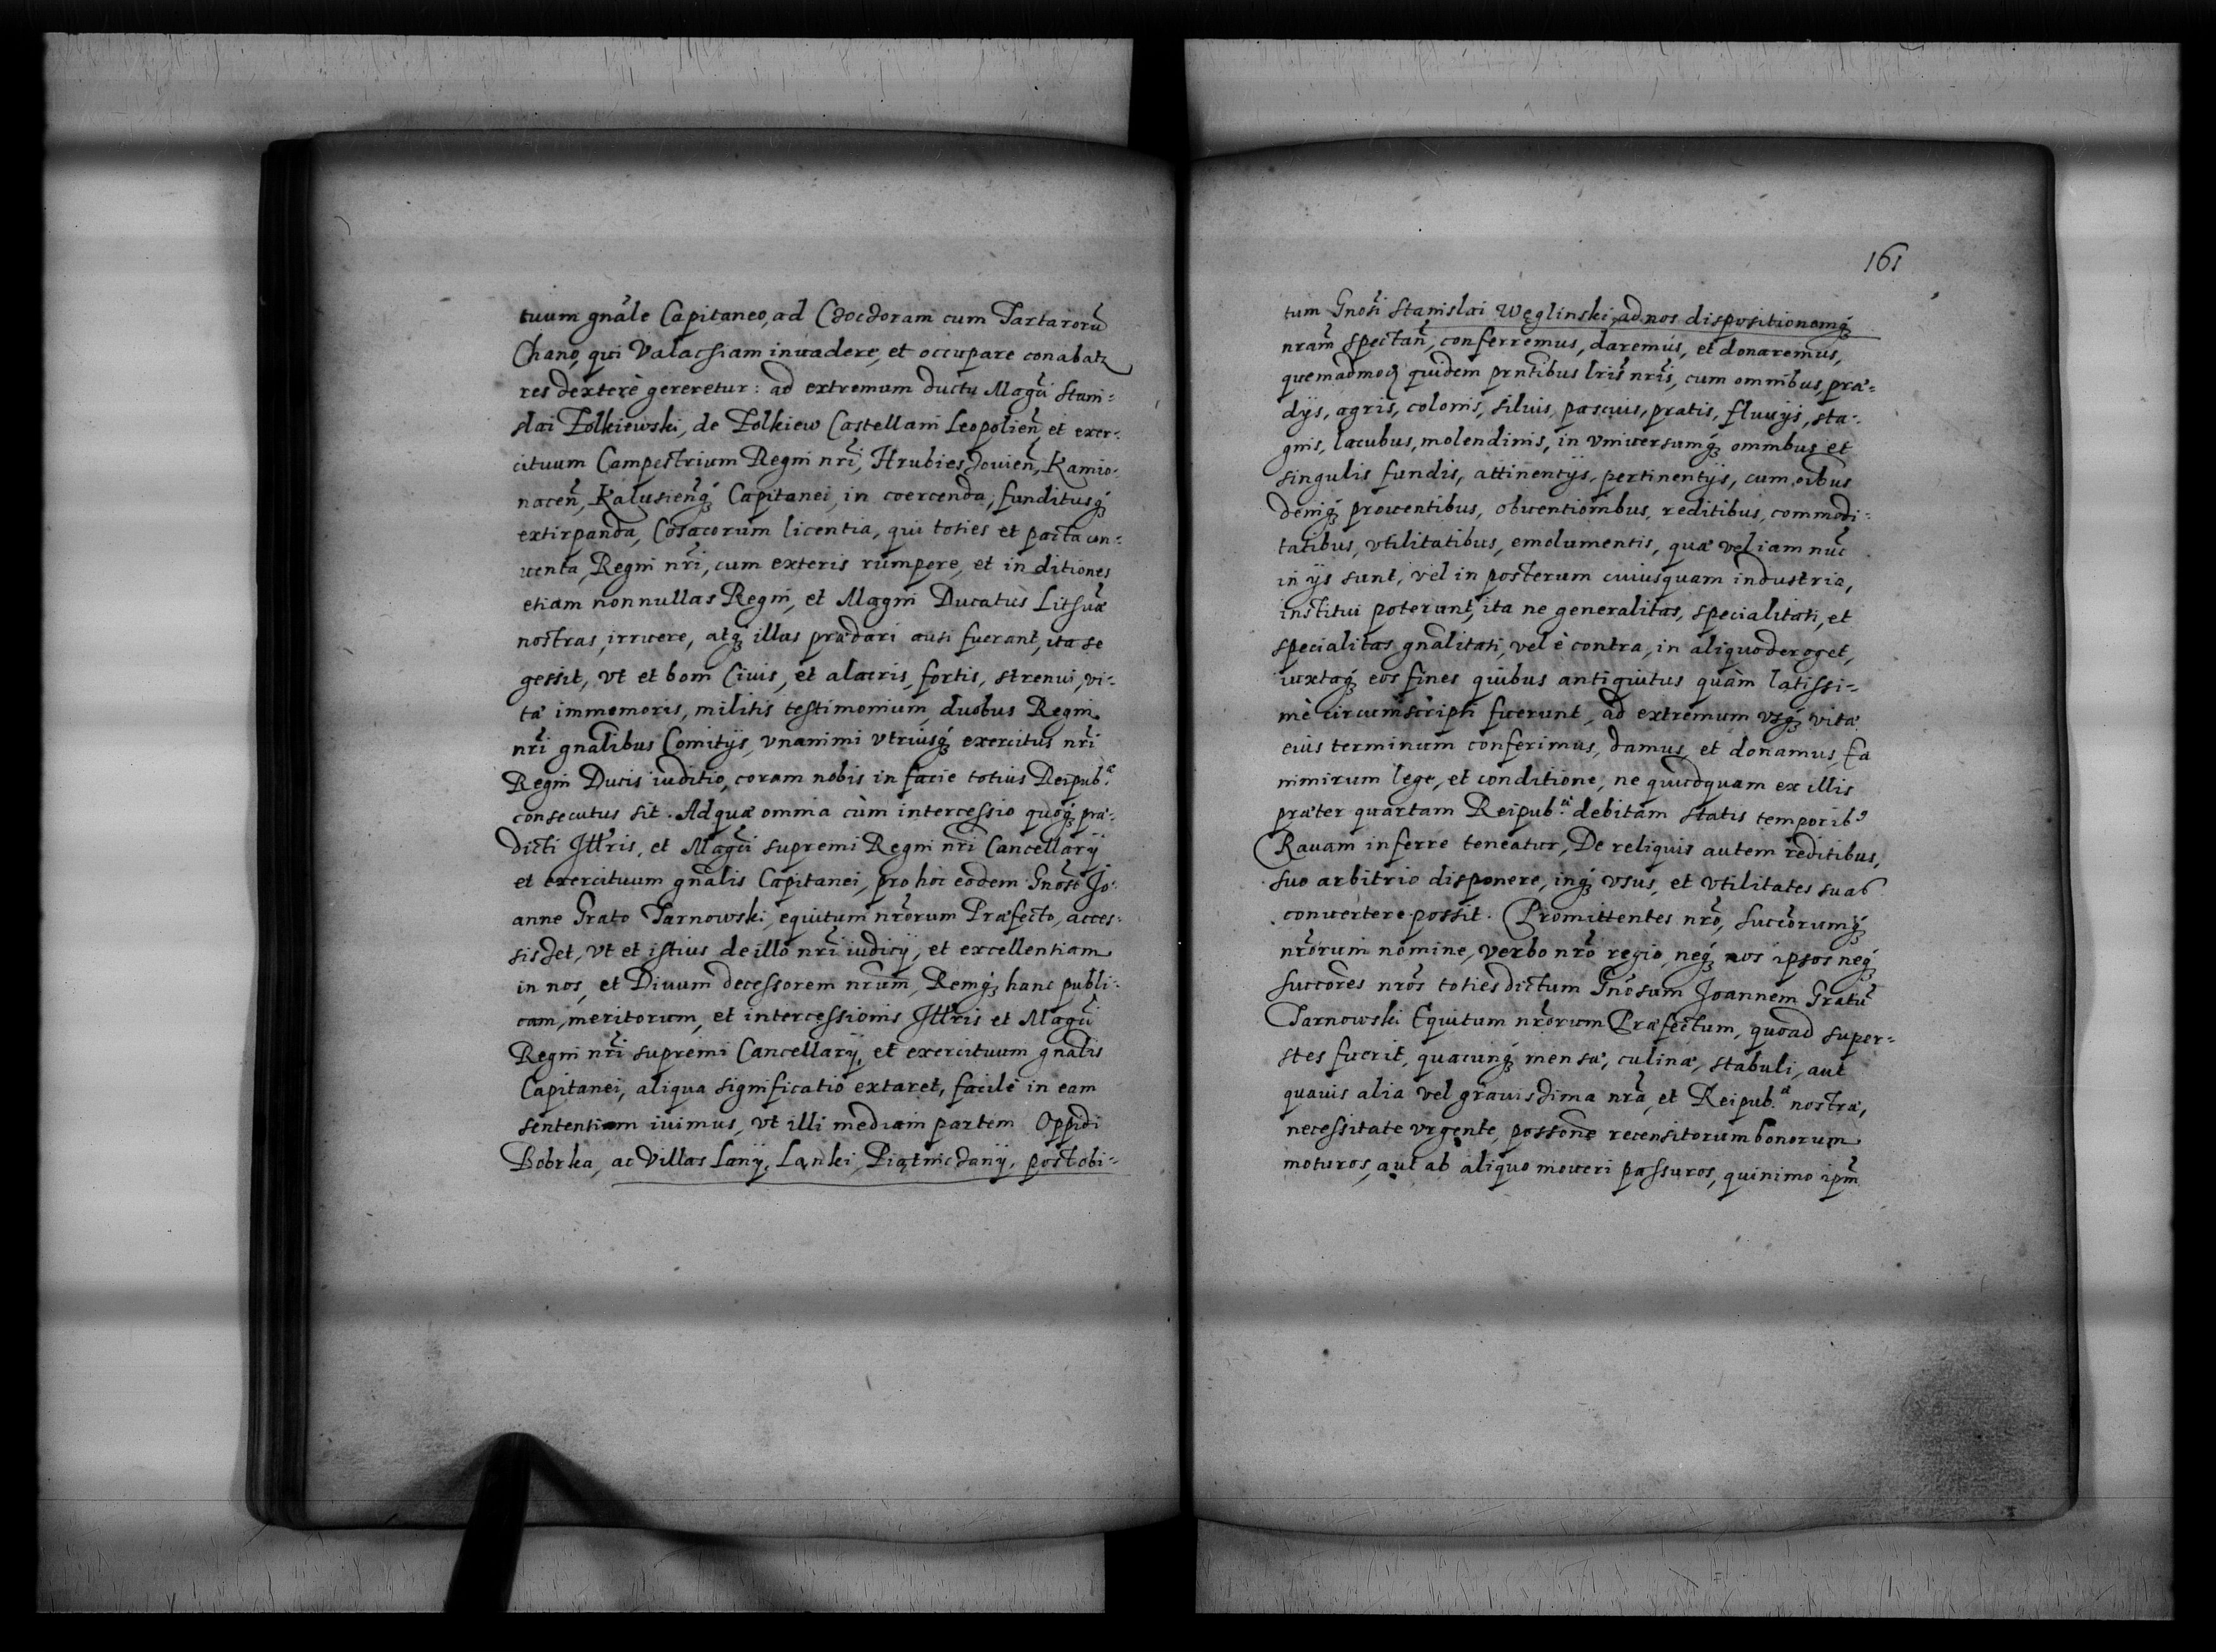 tuum gnãle Capitaneo, ad Chochoram cum Tartarorũ
Chano, qui Valachiam inuadere, et occupare conabatr
res dexterè gereretur: ad extremum ductu Magci Stani=
slai Żolkiewski, de Żolkiew Castellani Leopolien̄, et exer=
cituum Campestrium Regni nrĩ, Hrubieschouien̄, Kamio=
nacen̄, Kalusien̄q; Capitanei, in coercenda, funditusq;
extirpanda, Cosacorum licentia, qui toties et pacta con=
uenta, Regni nrĩ, cum exteris rumpere, et in ditiones
etiam nonnullas Regni, et Magni Ducatus Lithuæ
nostras, irruere, atq; illas prædari ausi fuerant, ita se
gessit, vt et boni Ciuis, et alacris, fortis, strenui, vi=
tæ immemoris, militis testimonium, duobus Regni
nrĩ gnãlibus Comitijs, vnanimi vtriusq; exercitus nrĩ
Regni Ducis iuditio, coram nobis in facie totius Reipub.æ
consecutus sit. Ad quæ omnia cùm intercessio quoq; præ=
dicti Illris, et Magci supremi Regni nrĩ Cancellarij
et exercituum gnãlis Capitanei, pro hoc eodem Gnõso Jo=
anne Grato Tarnowski, equitum nrõrum Præfecto, acces=
sisset, vt et istius de illo nrĩ iudicij, et excellentiam
in nos, et Diuum decessorem nrũm, Remq; hanc publi=
cam, meritorum, et intercessionis Illris et Magci
Regni nrĩ supremi Cancellarij, et exercituum gnãlis
Capitanei, aliqua significatio extaret, facilè in eam
sententiam iuimus, vt illi mediam partem Oppidi
Bobrka, ac Villas Łany, Łanki, Piątniczany, post obi=
161
tum Gnõsi Stanislai Węglinski, ad nos dispositionemq;
nrãm spectañ, conferremus, daremus, et donaremus,
quemadmodũ quidem prñtibus lrĩs nrĩs, cum omnibus, præ=
dijs, agris, colonis, siluis, pascuis, pratis, fluuijs, sta=
gnis, lacubus, molendinis, in vniuersumq; omnibus et
singulis fundis, attinentijs, pertinentijs, cum oĩbus
deniq; prouentibus, obuentionibus, reditibus, commodi=
tatibus, vtilitatibus, emolumentis, quæ vel iam nũc
in ijs sunt, vel in posterum cuiusquam industria,
institui poterunt, ita ne generalitas, specialitati, et
specialitas gnãlitati, vel è contra, in aliquo deroget,
iuxtaq; eos fines quibus antiquitus quàm latissi=
mè circumscripti fuerunt, ad extremum vsq; vitæ
eius terminum conferimus, damus, et donamus, Ea
nimirum lege, et conditione, ne quicdquam ex illis
præter quartam Reipub.æ debitam statis temporib9
Rauam inferre teneatur, De reliquis autem reditibus,
suo arbitrio disponere, inq; vsus, et vtilitates suas
conuertere possit. Promittentes nrõ, succõrumq;
nrõrum nomine, verbo nrõ regio, neq; nos ipsos neq;
succõres nrõs toties dictum Gnõsum Joannem Gratũ
Tarnowski Equitum nrõrum Præfectum, quoad super=
stes fuerit, quacunq; mensæ, culinæ, stabuli, aut
quauis alia vel grauissima nrã, et Reipub.æ nostræ,
necessitate vrgente, possone recensitorum bonorum
moturos, aut ab aliquo moueri passuros, quinimo ipm̃